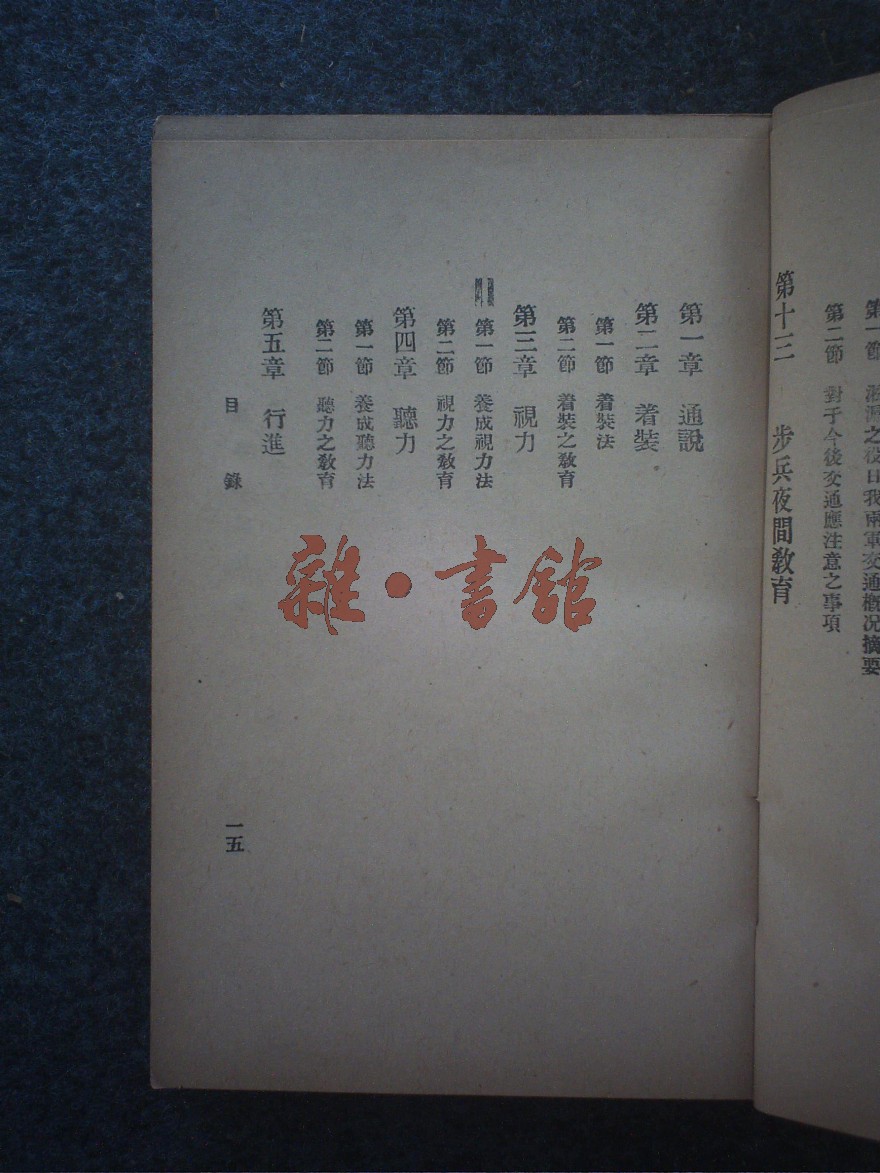 第一節 淞滬之役日我兩軍交通概况摘要
第二節 對于今後交通應注意之事項
第十三 步兵夜間敎育
第一章 通說
第二章 着裝
第一節 着裝法
第二節 着裝之敎育
第三章 視力
第一節 養成視力法
第二節 視力之敎育
第四章 聽力
第一節 養成聽力法
第二節 聽力之敎育
第五章 行進
目錄
一五
雜·書館